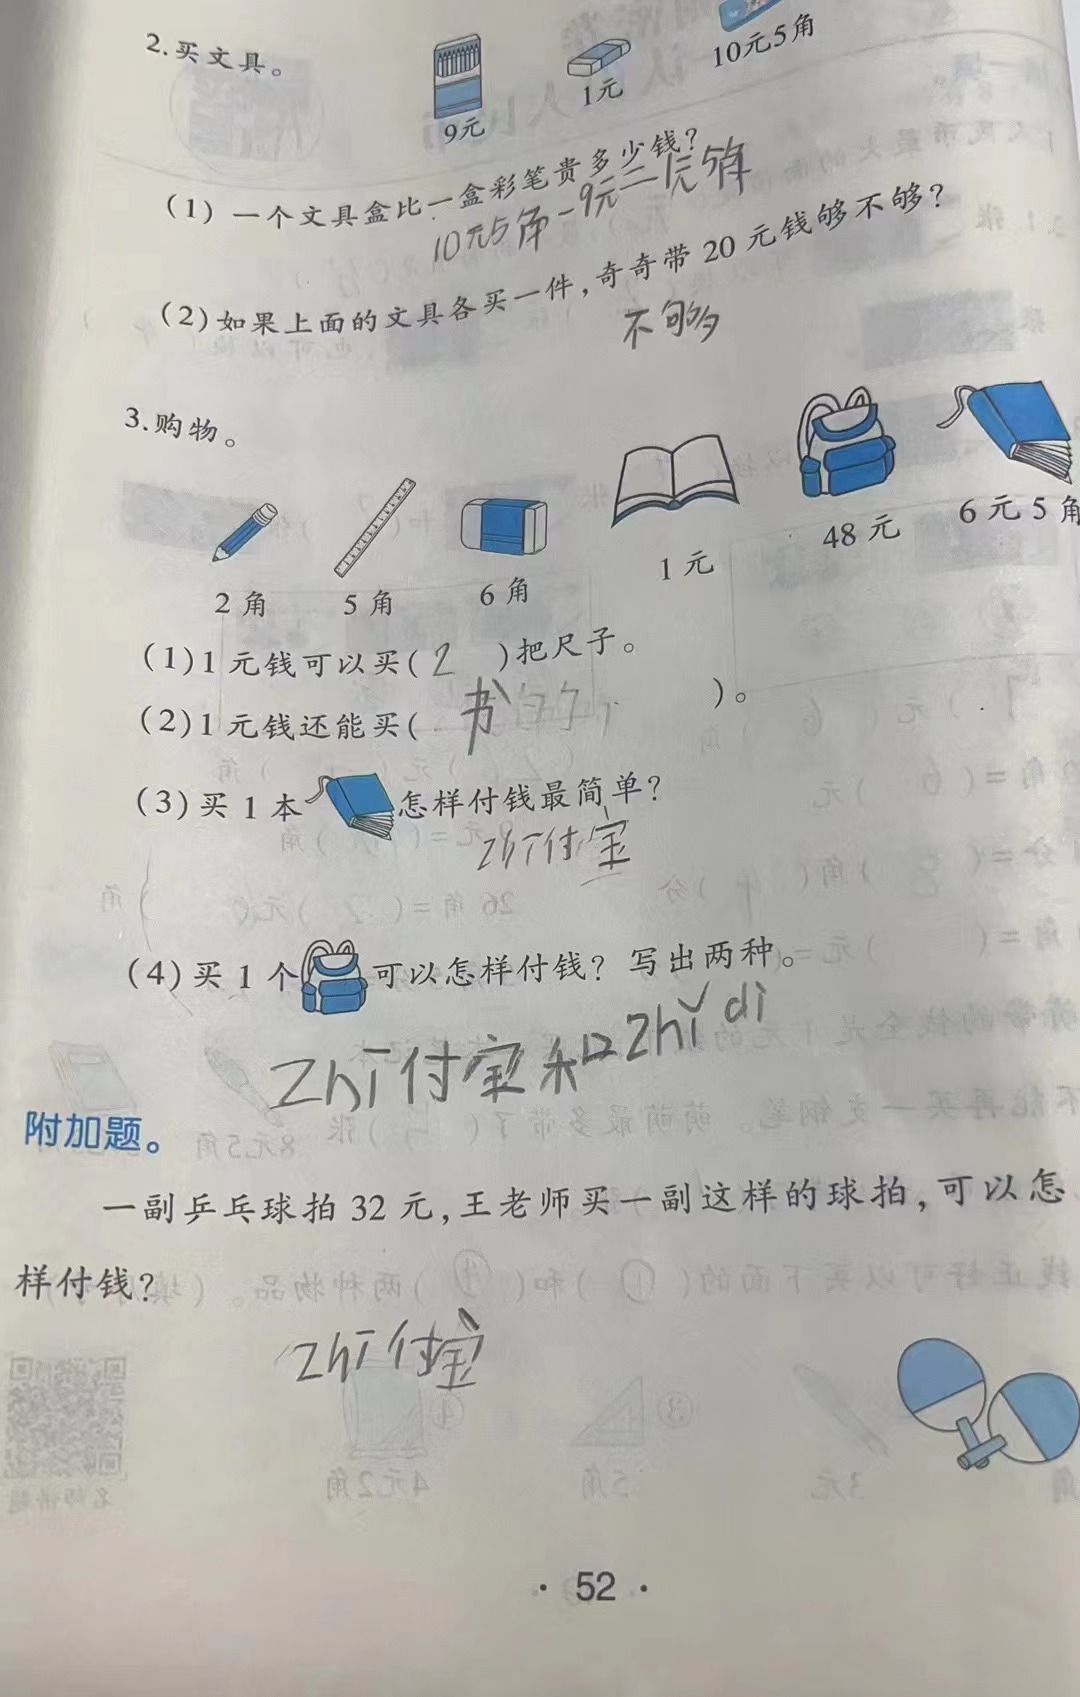 2.买文具。
9元
1元
10元5角
(1)一个文具盒比一盒彩笔贵多少钱?
10元5角-9元=1元5角
(2)如果上面的文具各买一件,奇奇带20元钱够不够?
不够
3.购物。
2角
5角
6角
1元
48元
6元5角
(1)1元钱可以买(2)把尺子。
(2)1元钱还能买(书)。
(3)买1本怎样付钱最简单?
zhī付宝
(4)买1个可以怎样付钱? 写出两种。
zhī付宝和zhǐ dì
附加题。
一副乒乓球拍32元,王老师买一副这样的球拍,可以怎
样付钱?
zhī付宝
· 52 ·